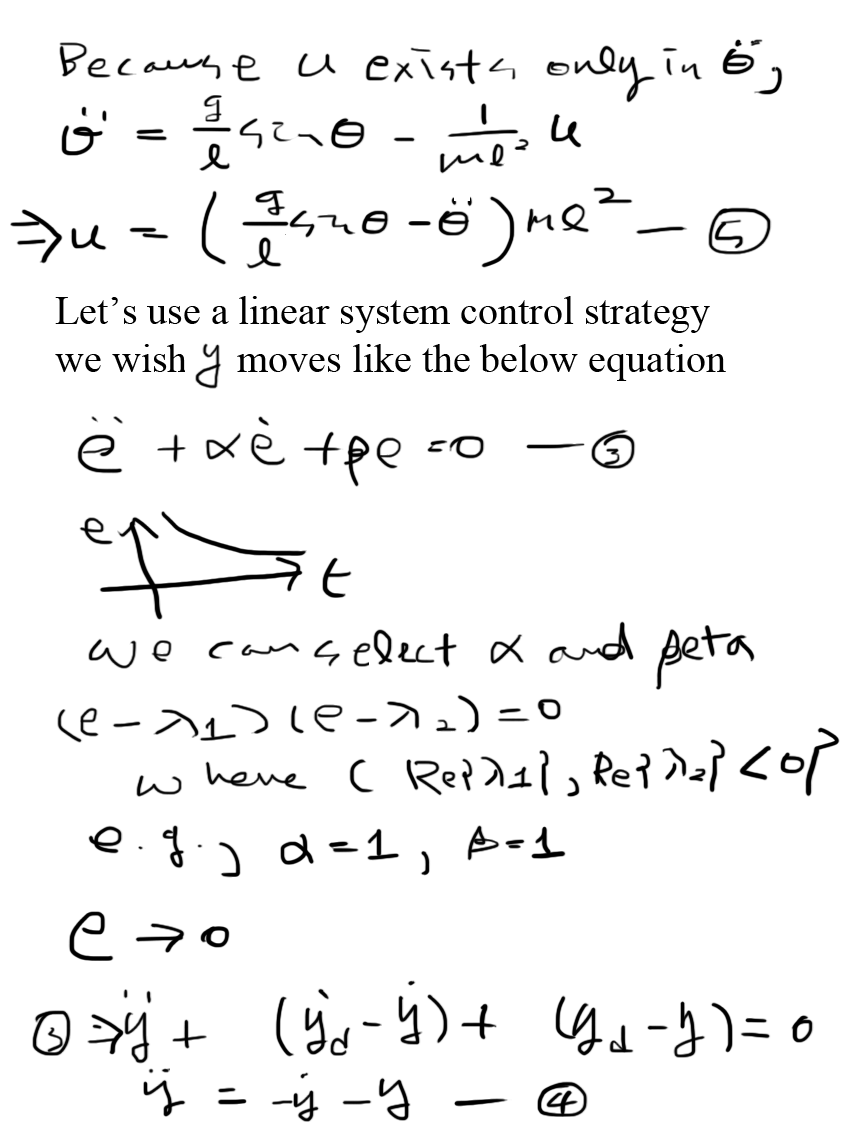 Because u exists only in θ̈,
θ̈ = g/l sinθ - 1/ml² u
⇒ u = (g/l sinθ - θ̈) ml² — ⑤
Let's use a linear system control strategy
we wish y moves like the below equation
ë + αė + βe = 0 — ③
e
t
we can select α and βeta
(e - λ1)(e - λ2) = 0
where ( Re{λ1}, Re{λ2} < 0}
e.g., α = 1, β = 1
e → 0
③ ⇒ ÿ + (ẏd - ẏ) + (yd - y) = 0
ÿ = -ẏ - y — ④